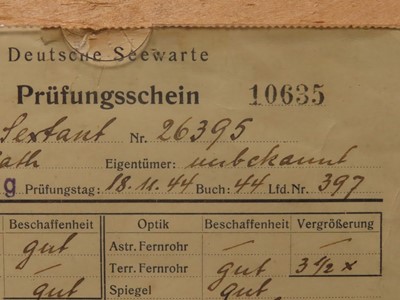 Deutsche Seewarte
Prüfungsschein 10635
Sextant Nr. 26395
Eigentümer: unbekannt
g Prüfungstag: 18.11.44 Buch: 44 Lfd. Nr. 397
Beschaffenheit Optik Beschaffenheit Vergrößerung
gut Astr. Fernrohr — —
— Terr. Fernrohr gut 3 1/2 x
gut Spiegel gut